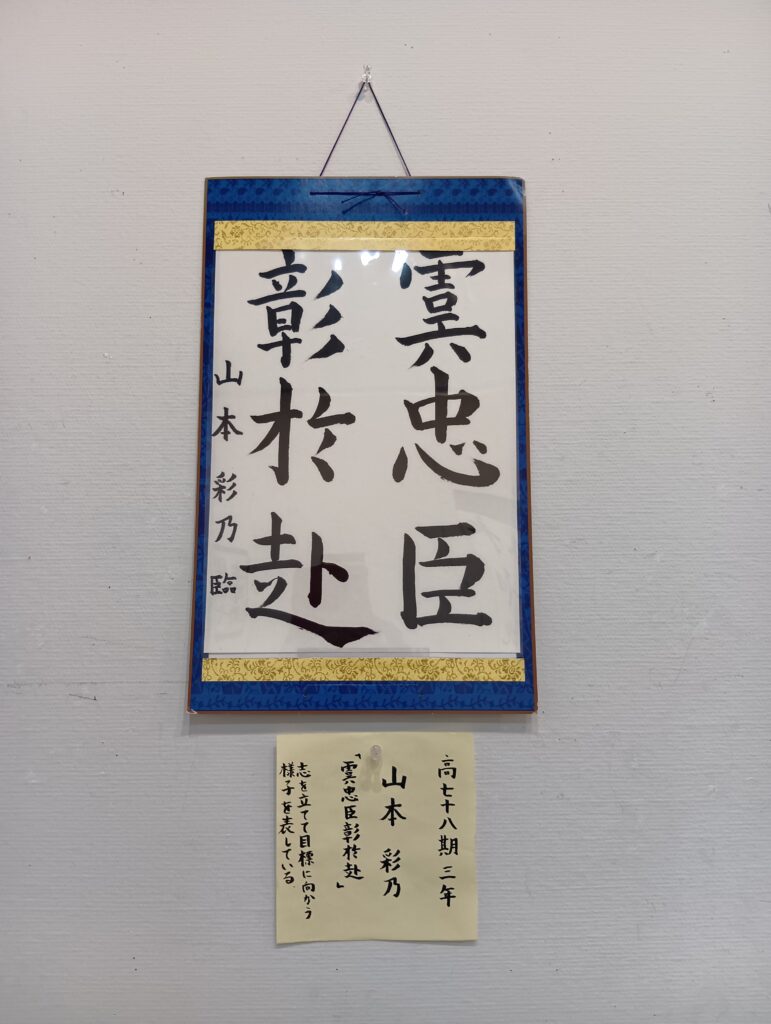 雲忠臣
彰於赴
山本彩乃臨
高七十八期三年
山本 彩乃
「雲忠臣彰於赴」
志を立てて目標に向かう
様子を表している